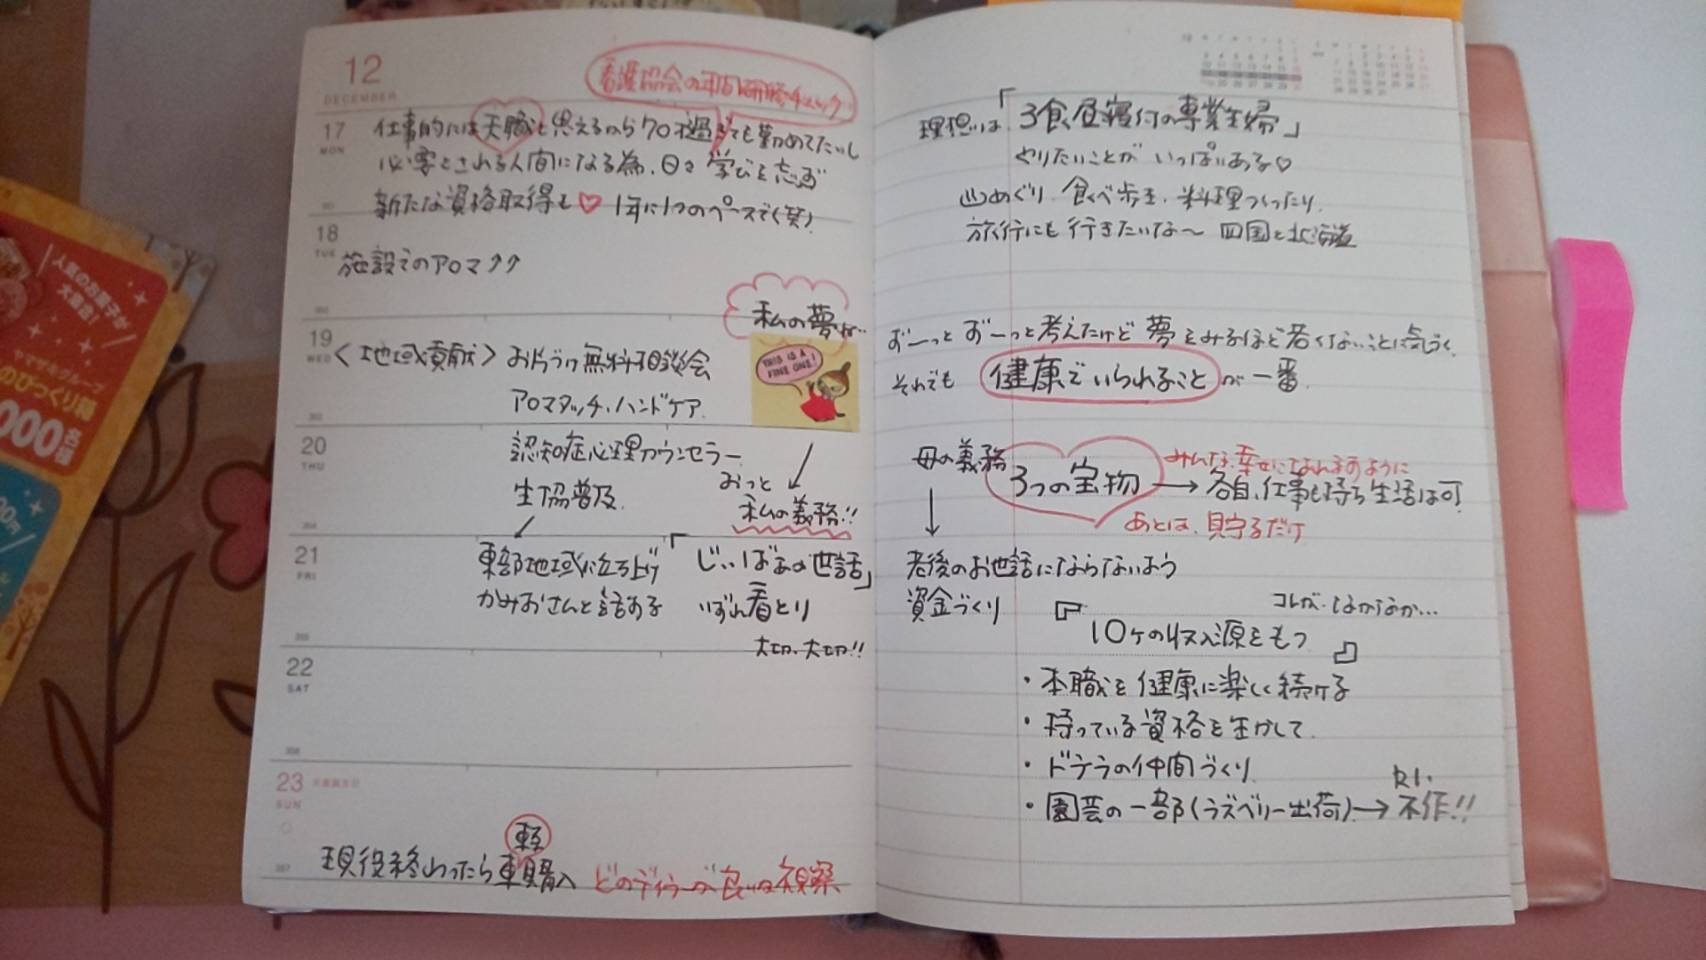 12
DECEMBER
看護協会の年間研修チェック
17
MON
仕事的には天職と思えるから70過ぎても勤めてたいし
必要とされる人間になる為、日々学びを忘れず
新たな資格取得も♡ 1年に1つのペースで(笑)
18
TUE
施設でのアロマ↗↗
19
WED
<地域貢献> お片づけ無料相談会
アロマタッチ、ハンドケア
20
THU
認知症心理カウンセラー
生協普及
21
FRI
東部地域に立ち上げ
かみおさんと話する
私の夢が…
THIS IS A
FINE ONE!
おっと
私の義務!!
「じぃばぁの世話」
いずれ看とり
大切、大切!!
22
SAT
23
SUN
天皇誕生日
現役終わったら軽車購入 どのディラーが良いか視察
理想は「3食昼寝付の専業主婦」
やりたいことが いっぱいある♡
山めぐり、食べ歩き、料理つくったり、
旅行にも行きたいな〜 四国と北海道
ずーっとずーっと考えたけど夢をみるほど若くないことに気づく
それでも 健康でいられること が一番
母の義務
3つの宝物 → 各自、仕事も持ち生活は可
みんな幸せになれますように
あとは、見守るだけ
老後のお世話にならないよう
資金づくり
コレが、なかなか…
『10ヶの収入源をもつ』
・本職を健康に楽しく続ける
・持っている資格を生かして
・ドテラの仲間づくり
・園芸の一部(ラズベリー出荷)→ 不作!!
人気のお菓子が
大集合!
のびっくり箱
000名様